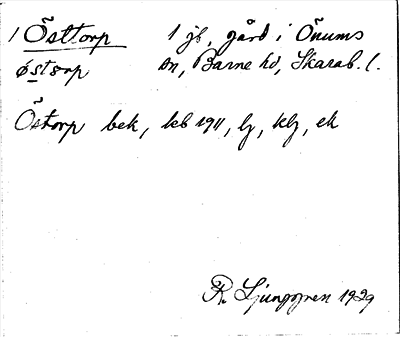 1 Östtorp 1 jb, gård i Önums
østorp sn, Barne hd, Skarab. l.
Östorp bek, kb 1911, lj, klj, ek
R. Ljunggren 1929